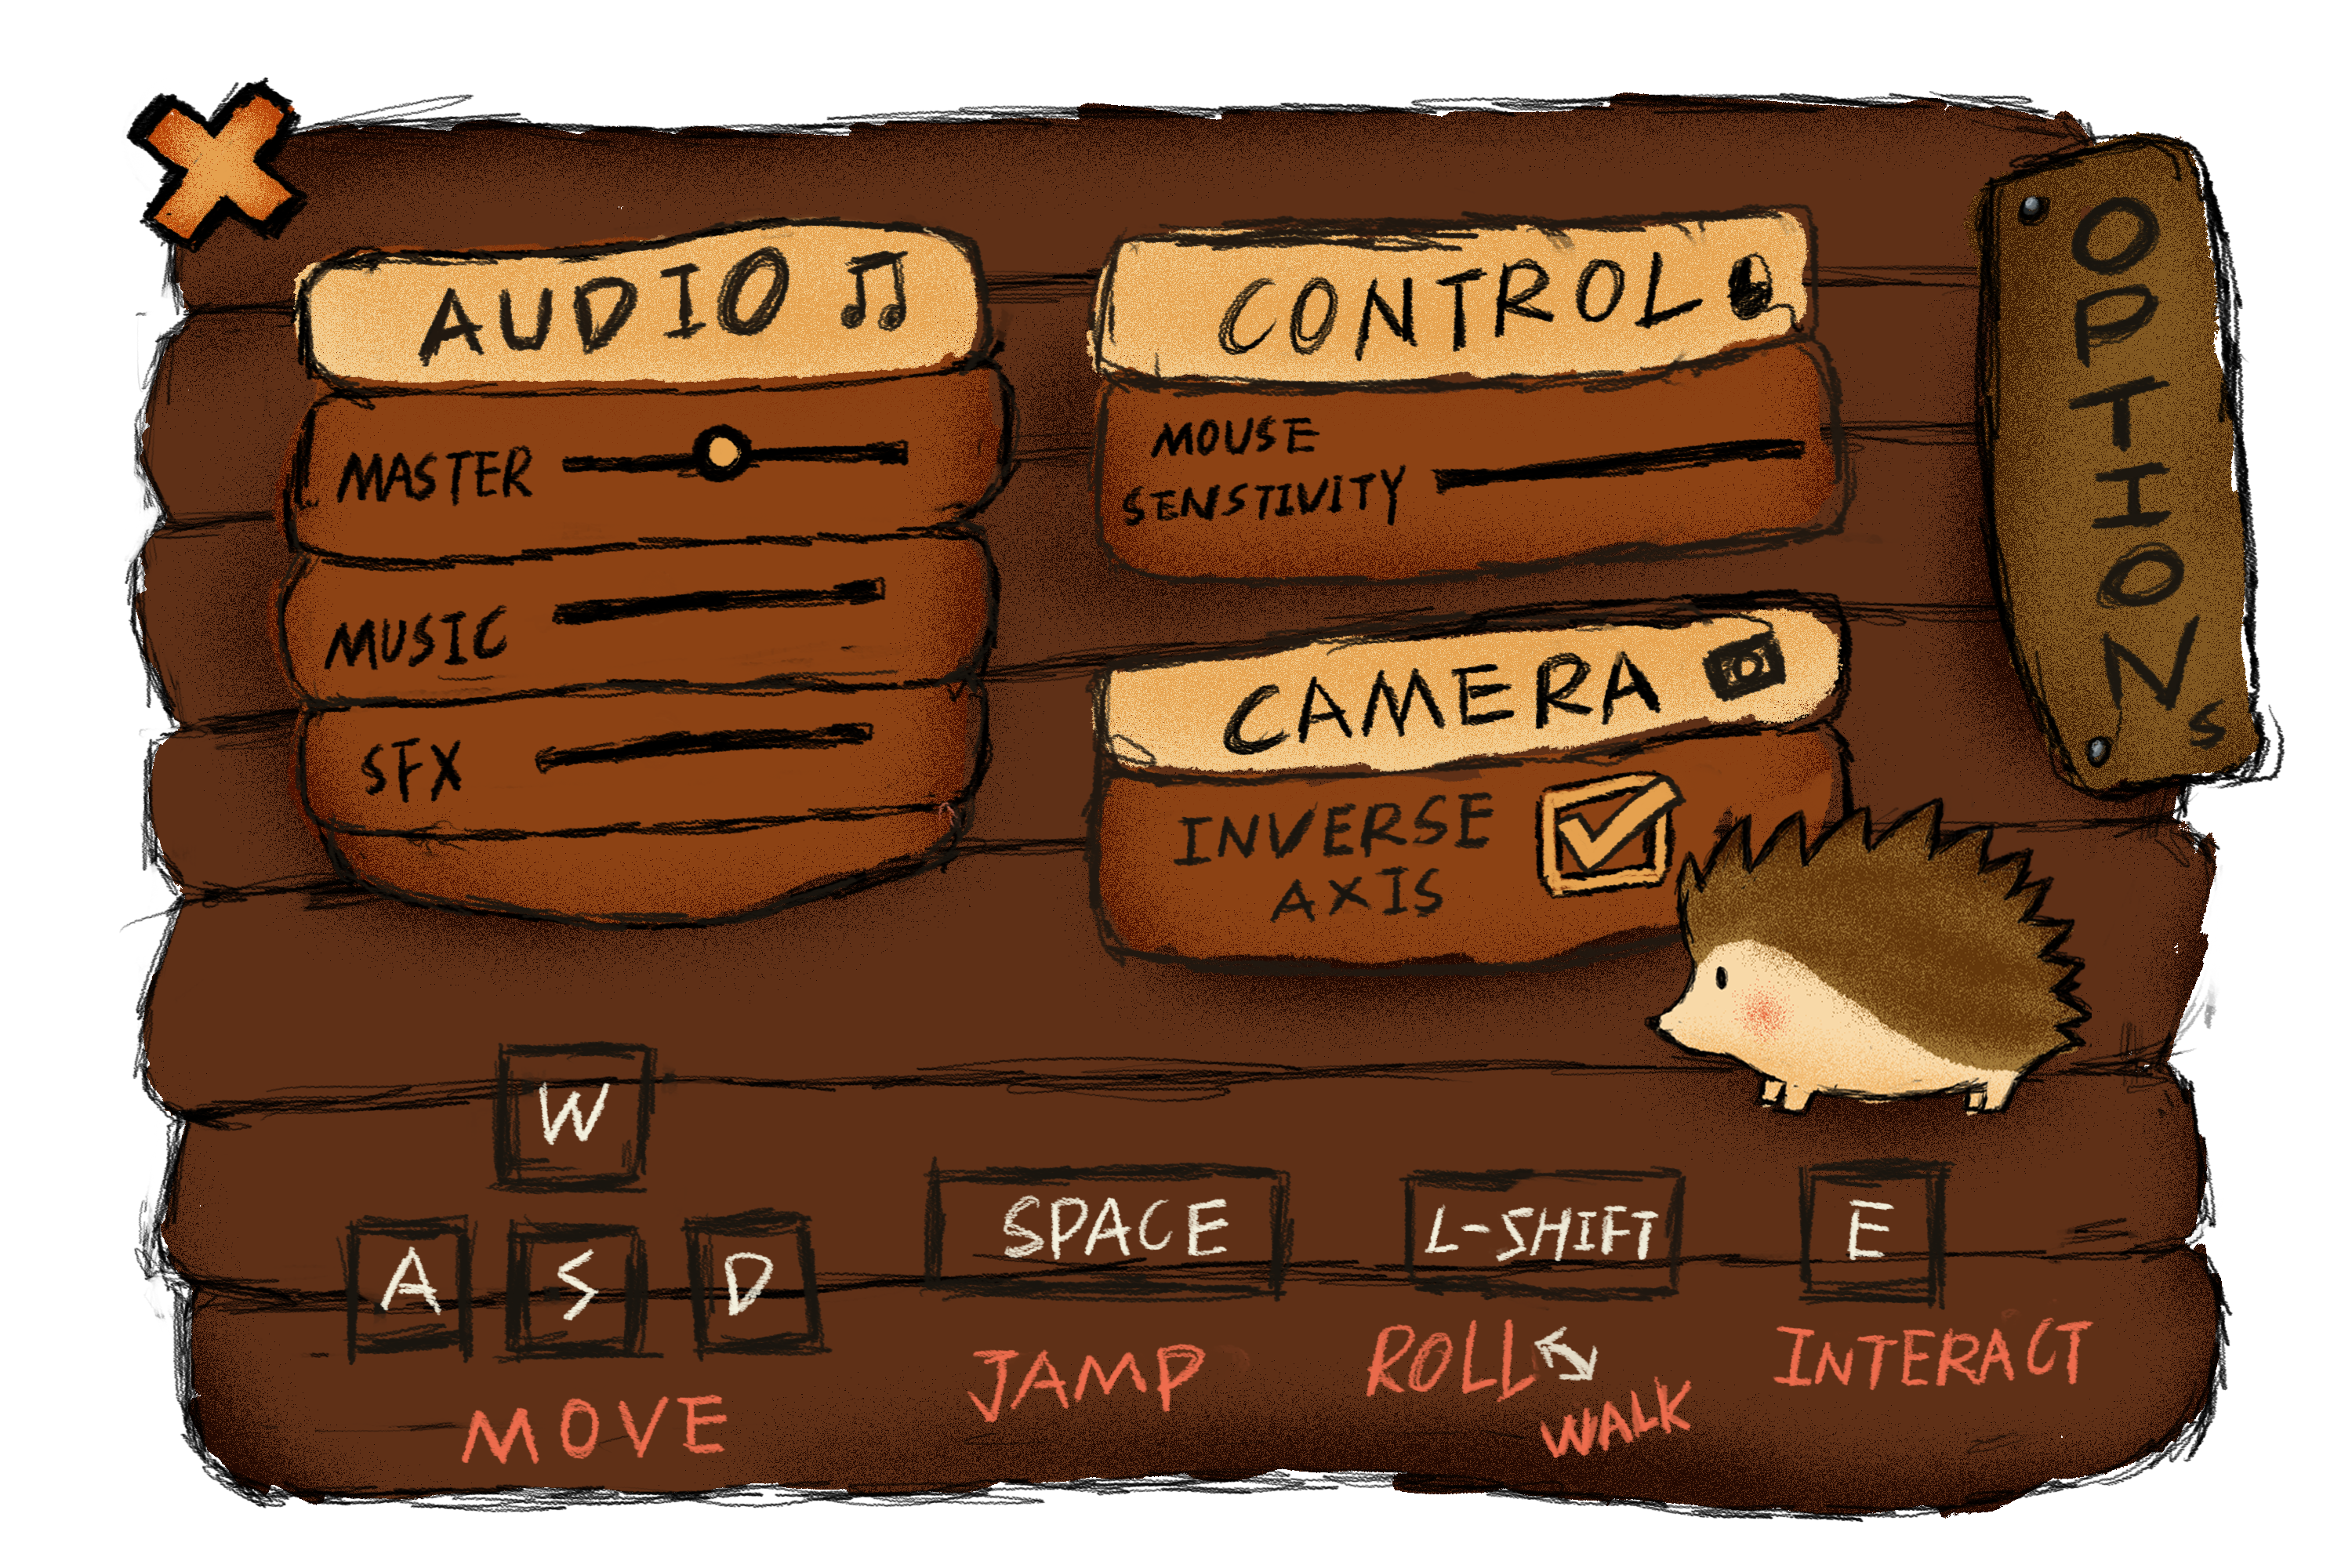 OPTIONS
AUDIO
MASTER
MUSIC
SFX
CONTROL
MOUSE
SENSTIVITY
CAMERA
INVERSE
AXIS
W
A S D
MOVE
SPACE
JAMP
L-SHIFT
ROLL
WALK
E
INTERACT